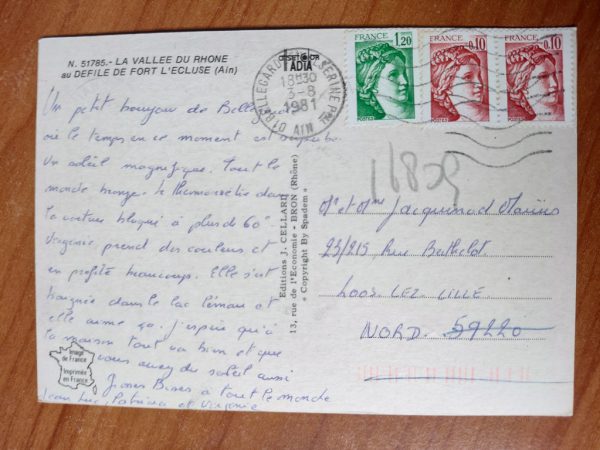 N. 51785.- LA VALLEE DU RHONE
au DEFILE DE FORT L'ECLUSE (Ain)
Un petit bonjour de Bellegarde
où le temps en ce moment est superbe.
Un soleil magnifique. Tout le
monde bronze. le thermomètre dans
la voiture bloqué à plus de 60°
Virginie prend des couleurs et
en profite beaucoup. Elle s'est
baignée dans le lac Léman et
elle aime ça. J'espère qu'à
la maison tout va bien et que
vous avez du soleil aussi
Grosses Bises à tout le monde
Jean Luc Patricia et Virginie
Image
de France
Imprimée
en France
Editions J. CELLARD
13, rue de l'Economie - BRON (Rhône)
« Copyright By Spadem »
01 BELLEGARDE
18H30
3-8
1981
AIN
FRANCE
1,20
POSTES
FRANCE
0,10
POSTES
FRANCE
0,10
POSTES
16809
Mr et Mme Jacquemod
23/215 Rue Berthelot
LOOS LEZ LILLE
NORD. 59220